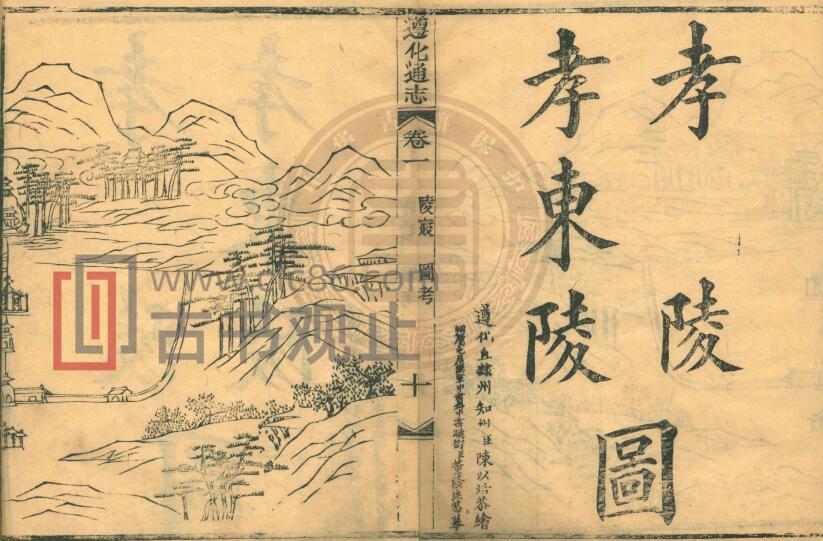 孝陵
孝東陵
圖
遵化直隸州知州臣陳以培恭繪
職銜臣 恭摹
遵化通志
卷一
陵寢 圖考
十
古书观止